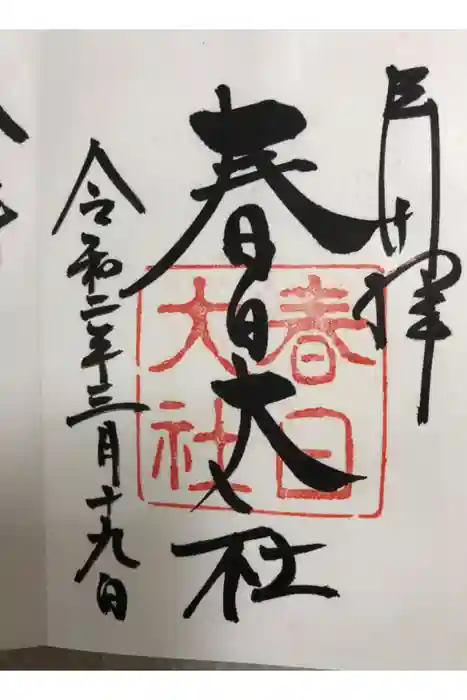 奉拝
春日大社
令和二年三月十九日
春日
大社